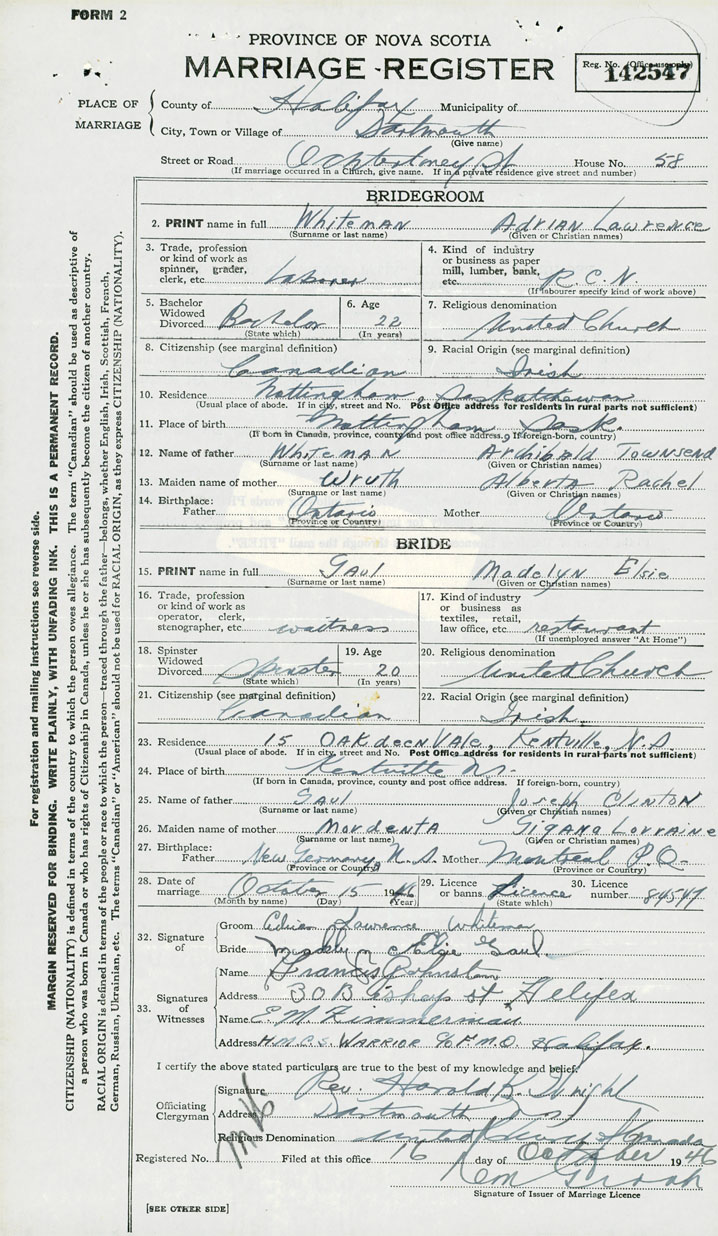 FORM 2
PROVINCE OF NOVA SCOTIA
MARRIAGE REGISTER
Reg. No. (Office use only)
142547
PLACE OF MARRIAGE
County of Halifax Municipality of
City, Town or Village of Dartmouth
(Give name)
Street or Road St House No. 58
(If marriage occurred in a Church, give name. If in a private residence give street and number)
BRIDEGROOM
2. PRINT name in full Whiteman Adrian Lawrence
(Surname or last name) (Given or Christian names)
3. Trade, profession or kind of work as spinner, grader, clerk, etc. Laborer
4. Kind of industry or business as paper mill, lumber, bank, etc. R.C.N.
(If labourer specify kind of work above)
5. Bachelor Widowed Divorced Bachelor
(State which)
6. Age 22
(In years)
7. Religious denomination
United Church
8. Citizenship (see marginal definition)
Canadian
9. Racial Origin (see marginal definition)
Irish
10. Residence Nottingham, Saskathewan
(Usual place of abode. If in city, street and No. Post Office address for residents in rural parts not sufficient)
11. Place of birth Nottingham Sask.
(If born in Canada, province, county and post office address. If foreign-born, country)
12. Name of father Whiteman Archibald Townsend
(Surname or last name) (Given or Christian names)
13. Maiden name of mother Wruth Alberta Rachel
(Surname or last name) (Given or Christian names)
14. Birthplace: Father Ontario Mother Ontario
(Province or Country) (Province or Country)
BRIDE
15. PRINT name in full Gaul Madelyn Elsie
(Surname or last name) (Given or Christian names)
16. Trade, profession or kind of work as operator, clerk, stenographer, etc. waitress
17. Kind of industry or business as textiles, retail, law office, etc. restaurant
(If unemployed answer "At Home")
18. Spinster Widowed Divorced Spinster
(State which)
19. Age 20
(In years)
20. Religious denomination
United Church
21. Citizenship (see marginal definition)
Canadian
22. Racial Origin (see marginal definition)
Irish.
23. Residence 15 Oakdeen Vale, Kentville, N.S
(Usual place of abode. If in city, street and No. Post Office address for residents in rural parts not sufficient)
24. Place of birth Kentville
(If born in Canada, province, county and post office address. If foreign-born, country)
25. Name of father Gaul Joseph Clinton
(Surname or last name) (Given or Christian names)
26. Maiden name of mother Mordenta Lorraine
(Surname or last name) (Given or Christian names)
27. Birthplace: Father New Germany, N.S. Mother Montreal P.Q.
(Province or Country) (Province or Country)
28. Date of marriage October 15 1946
(Month by name) (Day) (Year)
29. Licence or banns. Licence
(State which)
30. Licence number 84547
32. Signature of
Groom Lawrence Whiteman
Bride Madelyn Elsie Gaul
33. Signatures of Witnesses
Name Francis Johnston
Address 30 Bishop St Halifax
Name E.M. Zimmerman
Address H.M.C.S. Warrior c/o F.M.O. Halifax.
I certify the above stated particulars are true to the best of my knowledge and belief.
Officiating Clergyman
Signature Rev. Harold B. Wright
Address Dartmouth
Religious Denomination United Church of Canada
Registered No. Filed at this office 16 day of October 1946
Signature of Issuer of Marriage Licence
[SEE OTHER SIDE]
For registration and mailing instructions see reverse side.
MARGIN RESERVED FOR BINDING. WRITE PLAINLY, WITH UNFADING INK. THIS IS A PERMANENT RECORD.
CITIZENSHIP (NATIONALITY) is defined in terms of the country to which the person owes allegiance. The term "Canadian" should be used as descriptive of
a person who was born in Canada or who has rights of Citizenship in Canada, unless he or she has subsequently become the citizen of another country.
RACIAL ORIGIN is defined in terms of the people or race to which the person—traced through the father—belongs, whether English, Irish, Scottish, French,
German, Russian, Ukrainian, etc. The terms "Canadian" or "American" should not be used for RACIAL ORIGIN, as they express CITIZENSHIP (NATIONALITY).